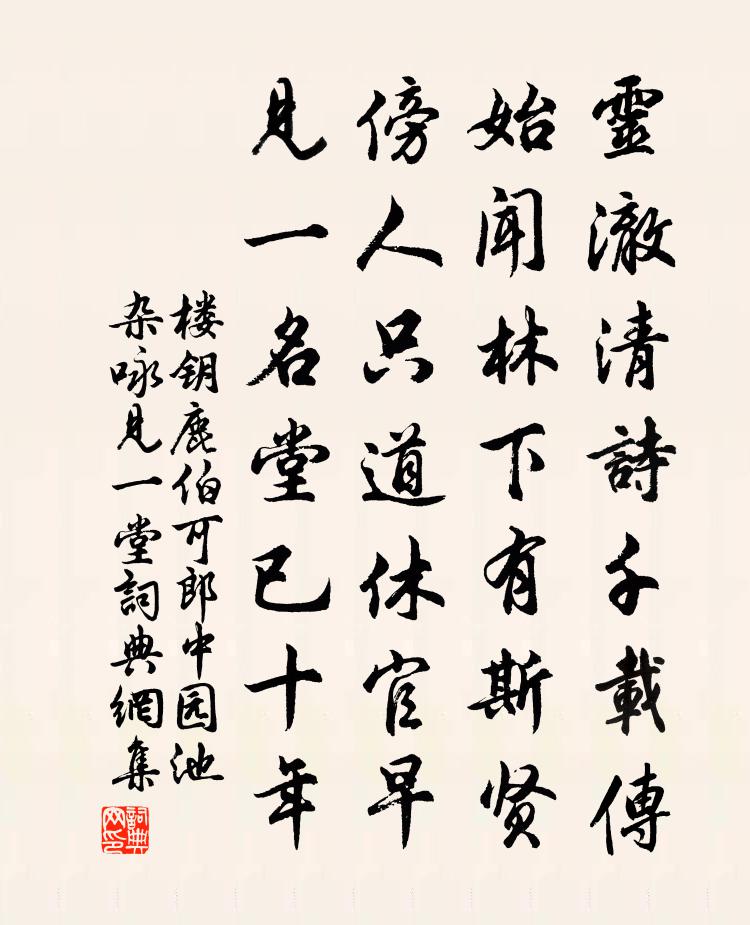 靈澈清詩千載傳
始聞林下有斯贤
傍人只道休官早
見一名堂已十年
楼钥鹿伯可郎中园池
杂咏見一堂詞典網集
詞典
网印